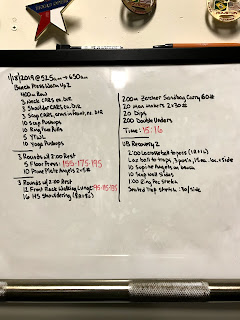 1/13/2019 @ 525am → 650am
Bench Press Warm Up 2
400m Row
3 Neck CARs ea. DIR
3 Shoulder CARs ea. DIR
3 Scap CARs, arms in front, ea. DIR
10 Scap Pushups
10 Ring Fan Rolls
5 YTWLs
10 Yoga Pushups
3 Rounds w/ 2:00 Rest
5 Floor Press: 155-175-195
10 Prone Plate Angels 2x5#
3 Rounds w/ 2:00 Rest
12 Front Rack Walking Lunge: 95-115-135
16 HS Shouldering
200m Zercher Sandbag Carry 60#
20 Man Makers 2x30#
20 Dips
200 Double Unders
Time: 15:16
UB Recovery 2
2:00 Lacrosse ball to pecs
Lax ball to traps, 3 pos'n, 15sec.
10 Supine Angels on bench
10 Scap Wall Slides
1:00 Ring Pec Stretch
Seated Trap Stretch: :30/side